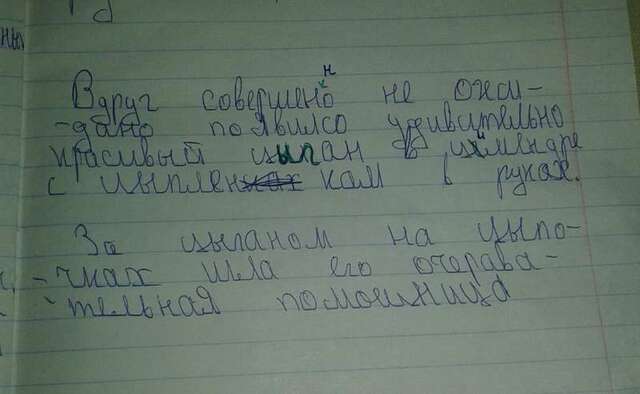 ных
Вдруг совершенно не ожи-
-дано появилсо удивительно
красивый цыпан в цилендре
с цыпленком в руках.
За цыганом на цыпо-
-чках шла его очерава-
-тельная помошница